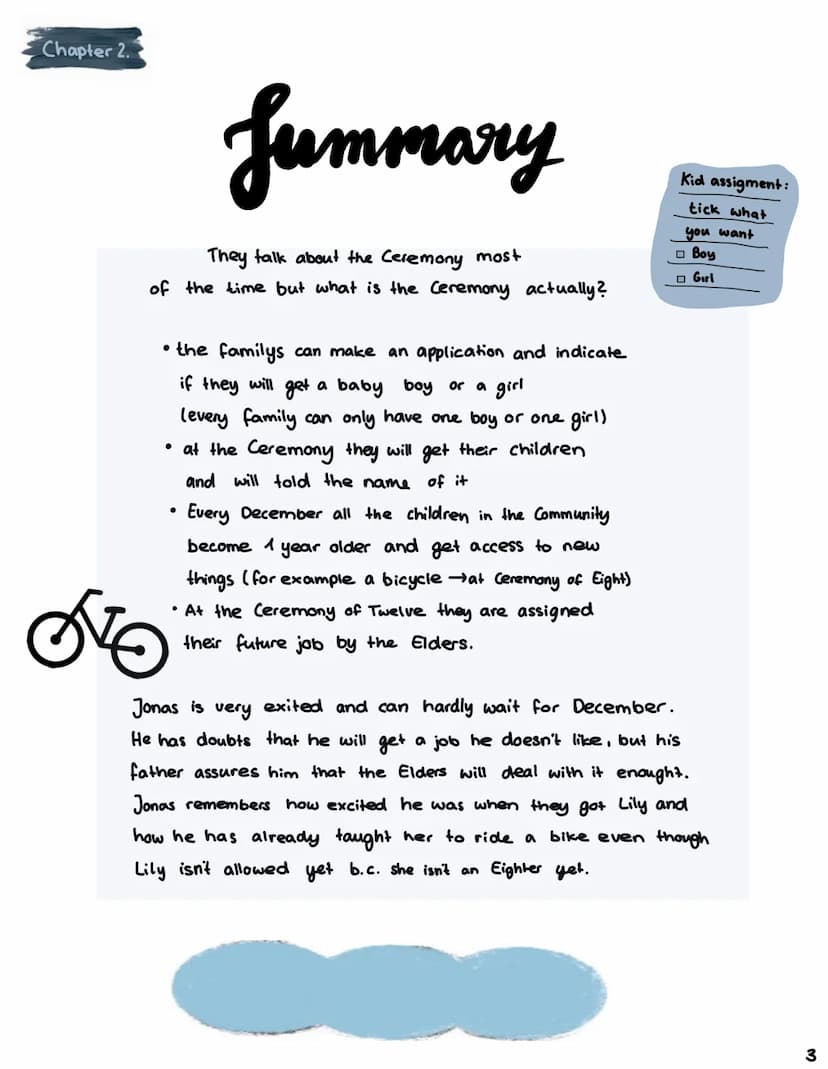 Chapter 2.
Summary
Kid assigment:
tick what
you want
Boy
Girl
They talk about the Ceremony most
of the time but what is the Ceremony actually?
• the familys can make an application and indicate
if they will get a baby boy or a girl
(every family can only have one boy or one girl)
• at the Ceremony they will get their children
and will told the name of it
• Every December all the children in the Community
become 1 year older and get access to new
things (for example a bicycle → at Ceremony of Eight)
• At the Ceremony of Twelve they are assigned
their future job by the Elders.
Jonas is very exited and can hardly wait for December.
He has doubts that he will get a job he doesn't like, but his
father assures him that the Elders will deal with it enought.
Jonas remembers how excited he was when they got Lily and
how he has already taught her to ride a bike even though
Lily isn't allowed yet b.c. she isn't an Eighter yet.
3